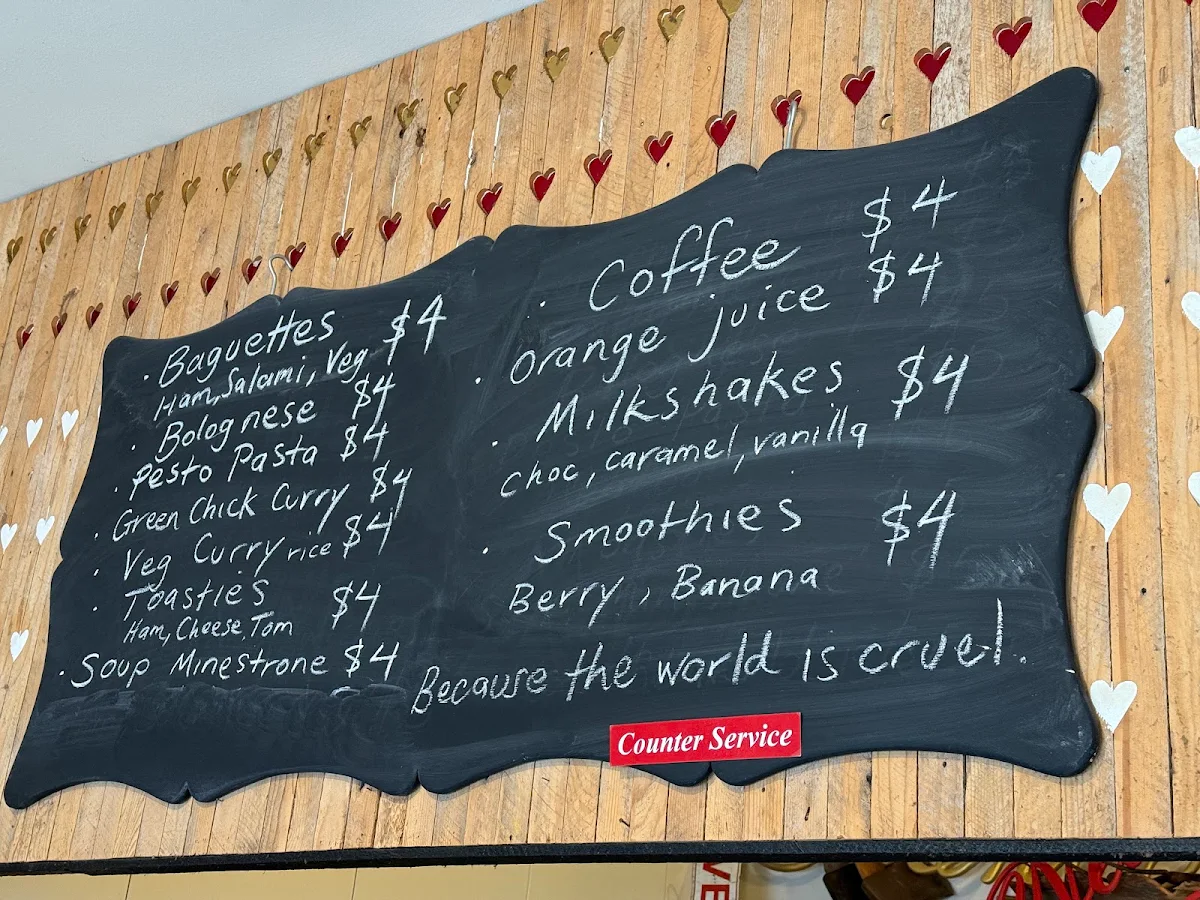 · Baguettes $4
Ham, Salami, Veg
· Bolognese $4
· Pesto Pasta $4
· Green Chick Curry $4
· Veg Curry rice $4
· Toasties $4
Ham, Cheese, Tom
· Soup Minestrone $4
· Coffee $4
· Orange juice $4
· Milkshakes $4
choc, caramel, vanilla
· Smoothies $4
Berry, Banana
Because the world is cruel.
Counter Service